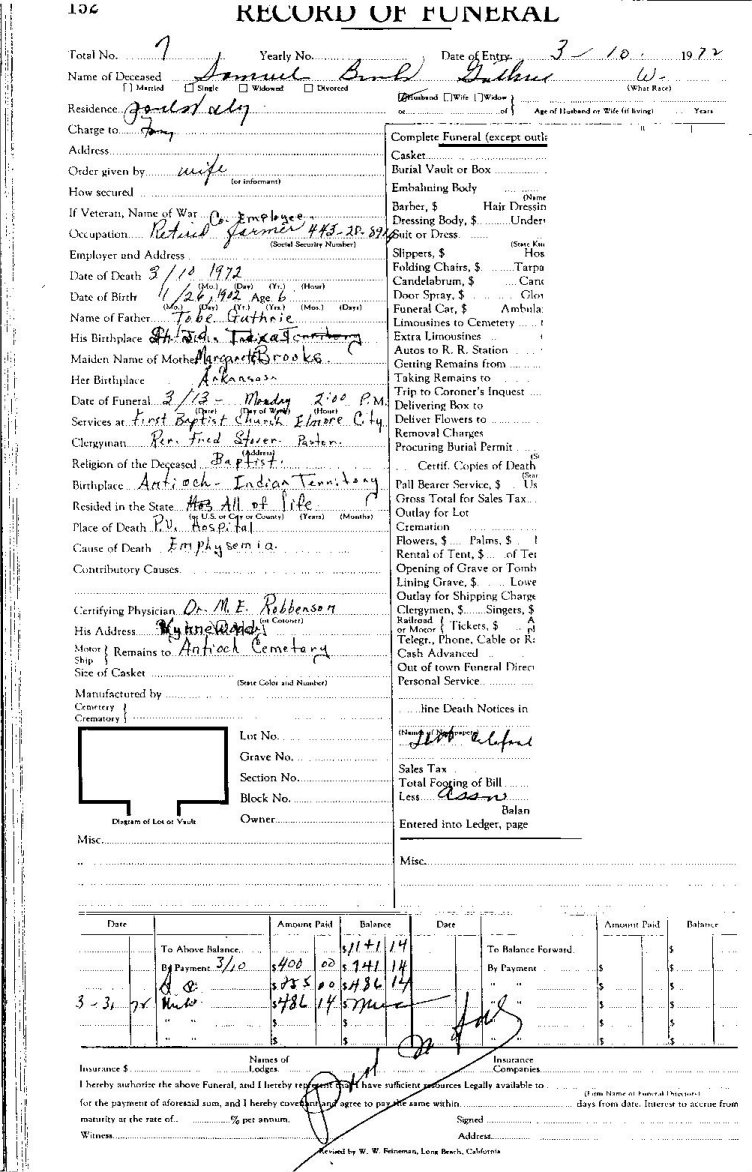 152
RECORD OF FUNERAL
Total No. 7 Yearly No. Date of Entry 3 / 10 1972
Name of Deceased Samuel Guthrie W.
Married Single Widowed Divorced Husband Wife Widow (What Race)
Residence
or of Age of Husband or Wife (if living) Years
Charge to
Address
Order given by wife
(or informant)
How secured
If Veteran, Name of War Co. Employee
Occupation Retired farmer 443-28-
(Social Security Number)
Employer and Address
Date of Death 3/10 1972
(Mo.) (Day) (Yr.) (Hour)
Date of Birth 1/26, 1902 Age
(Mo.) (Day) (Yr.) (Yrs.) (Mos.) (Days)
Name of Father Tobe Guthrie
His Birthplace
Maiden Name of Mother Margaret Brooks
Her Birthplace Arkansas
Date of Funeral 3/13 - Monday 2:00 P.M.
(Date) (Day of Week) (Hour)
Services at First Baptist Church Elmore City
Clergyman Rev. Fred Pastor.
(Address)
Religion of the Deceased Baptist.
Birthplace Antioch - Indian Territory
Resided in the State Has All of life
(or U.S. or City or County) (Years) (Months)
Place of Death P.V. Hospital
Cause of Death Emphysemia.
Contributory Causes
Certifying Physician Dr. M. E. Robbenson
(or Coroner)
His Address Wynnewood
Motor Ship Remains to Antioch Cemetary
Size of Casket
(State Color and Number)
Manufactured by
Cemetery
Crematory
Lot No.
Grave No.
Section No.
Block No.
Owner
Diagram of Lot or Vault
Misc.
Complete Funeral (except outla
Casket
Burial Vault or Box
Embalming Body
(Name
Barber, $ Hair Dressin
Dressing Body, $ Under
Suit or Dress
(State Kin
Slippers, $ Hos
Folding Chairs, $ Tarpa
Candelabrum, $ Cand
Door Spray, $ Glov
Funeral Car, $ Ambula
Limousines to Cemetery
Extra Limousines
Autos to R. R. Station
Getting Remains from
Taking Remains to
Trip to Coroner's Inquest
Delivering Box to
Deliver Flowers to
Removal Charges
Procuring Burial Permit
Certif. Copies of Death
Pall Bearer Service, $ Us
Gross Total for Sales Tax
Outlay for Lot
Cremation
Flowers, $ Palms, $
Rental of Tent, $ of Ten
Opening of Grave or Tomb
Lining Grave, $ Lowe
Outlay for Shipping Charge
Clergymen, $ Singers, $
Railroad or Motor Tickets, $
Telegr., Phone, Cable or Ra
Cash Advanced
Out of town Funeral Direct
Personal Service
line Death Notices in
(Names of Newspapers)
Sales Tax
Total Footing of Bill
Less Assn
Balan
Entered into Ledger, page
Misc.
Date Amount Paid Balance Date Amount Paid Balance
To Above Balance $1141 14 To Balance Forward $
By Payment 3/10 $400 00 $741 14 By Payment $ $
$255 00 $486 14 " " $ $
3-31 72 $486 14 $
" " $ $
" " $ $
Insurance $ Names of Lodges Insurance Companies
I hereby authorize the above Funeral, and I hereby represent that I have sufficient resources Legally available to
(Firm Name of Funeral Directors)
for the payment of aforesaid sum, and I hereby covenant and agree to pay the same within days from date. Interest to accrue from
maturity at the rate of % per annum. Signed
Witness Address
Revised by W. W. Feineman, Long Beach, California